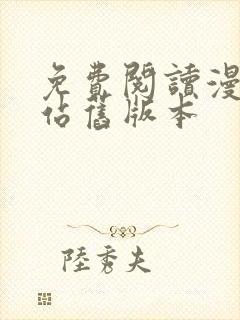 免費閱讀漫
佔舊版本
陸秀夫